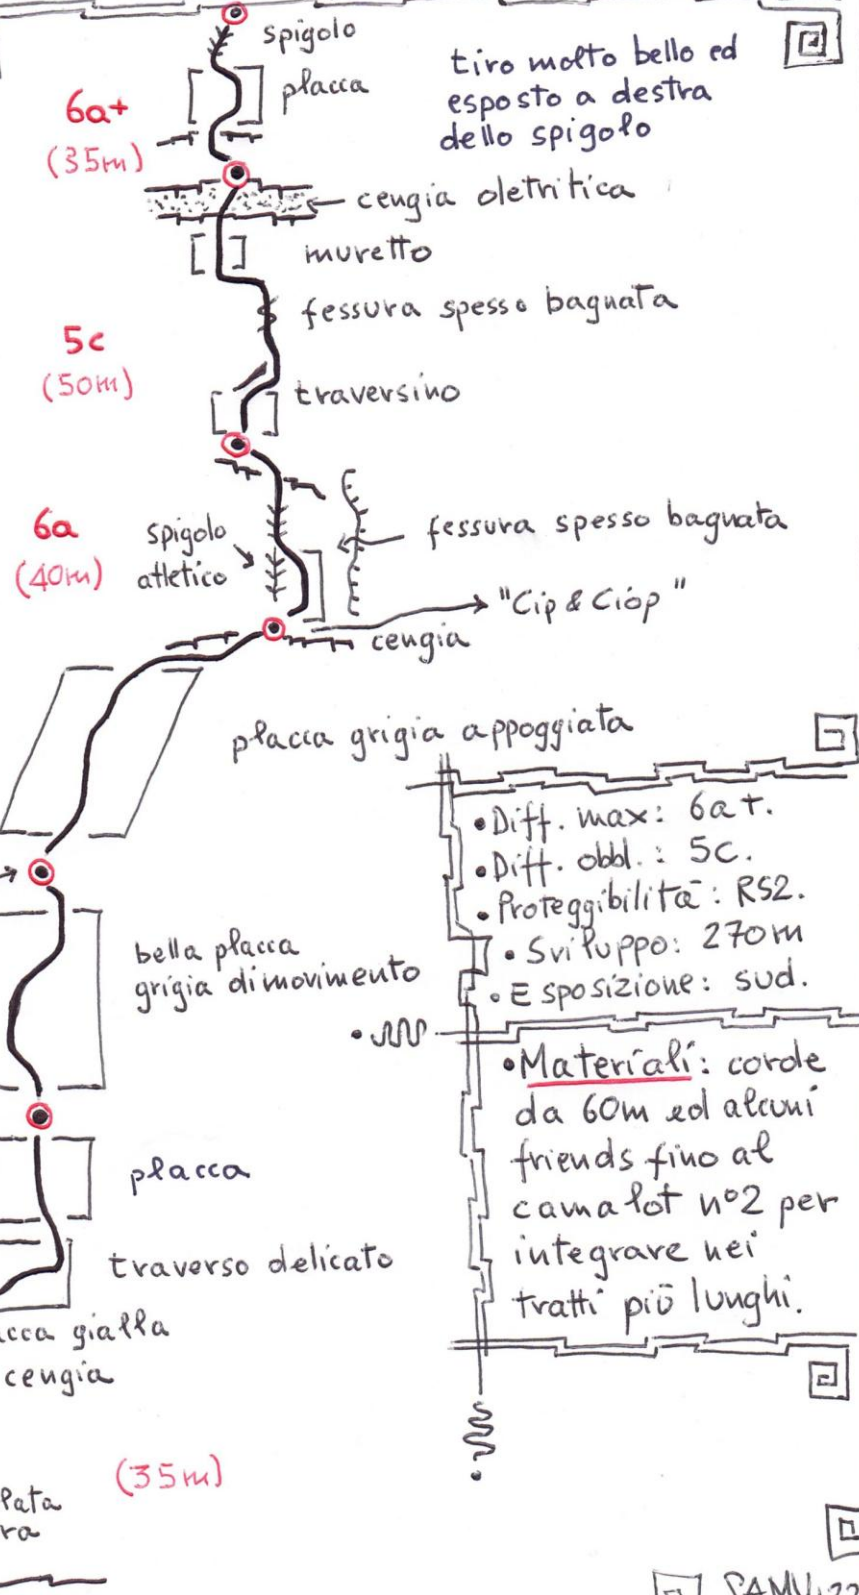 spigolo
placca
tiro molto bello ed
esposto a destra
dello spigolo
6a+
(35m)
cengia oletritica
muretto
fessura spesso bagnata
5c
(50m)
traversino
6a
(40m)
spigolo
atletico
fessura spesso bagnata
"Cip & Ciop"
cengia
placca grigia appoggiata
• Diff. max: 6a+.
• Diff. obbl.: 5c.
• Proteggibilità: RS2.
• Sviluppo: 270m
• Esposizione: sud.
bella placca
grigia di movimento
• Materiali: corde
da 60m ed alcuni
friends fino al
camalot n°2 per
integrare nei
tratti più lunghi.
placca
traverso delicato
cca gialla
cengia
(35m)
lata
ra